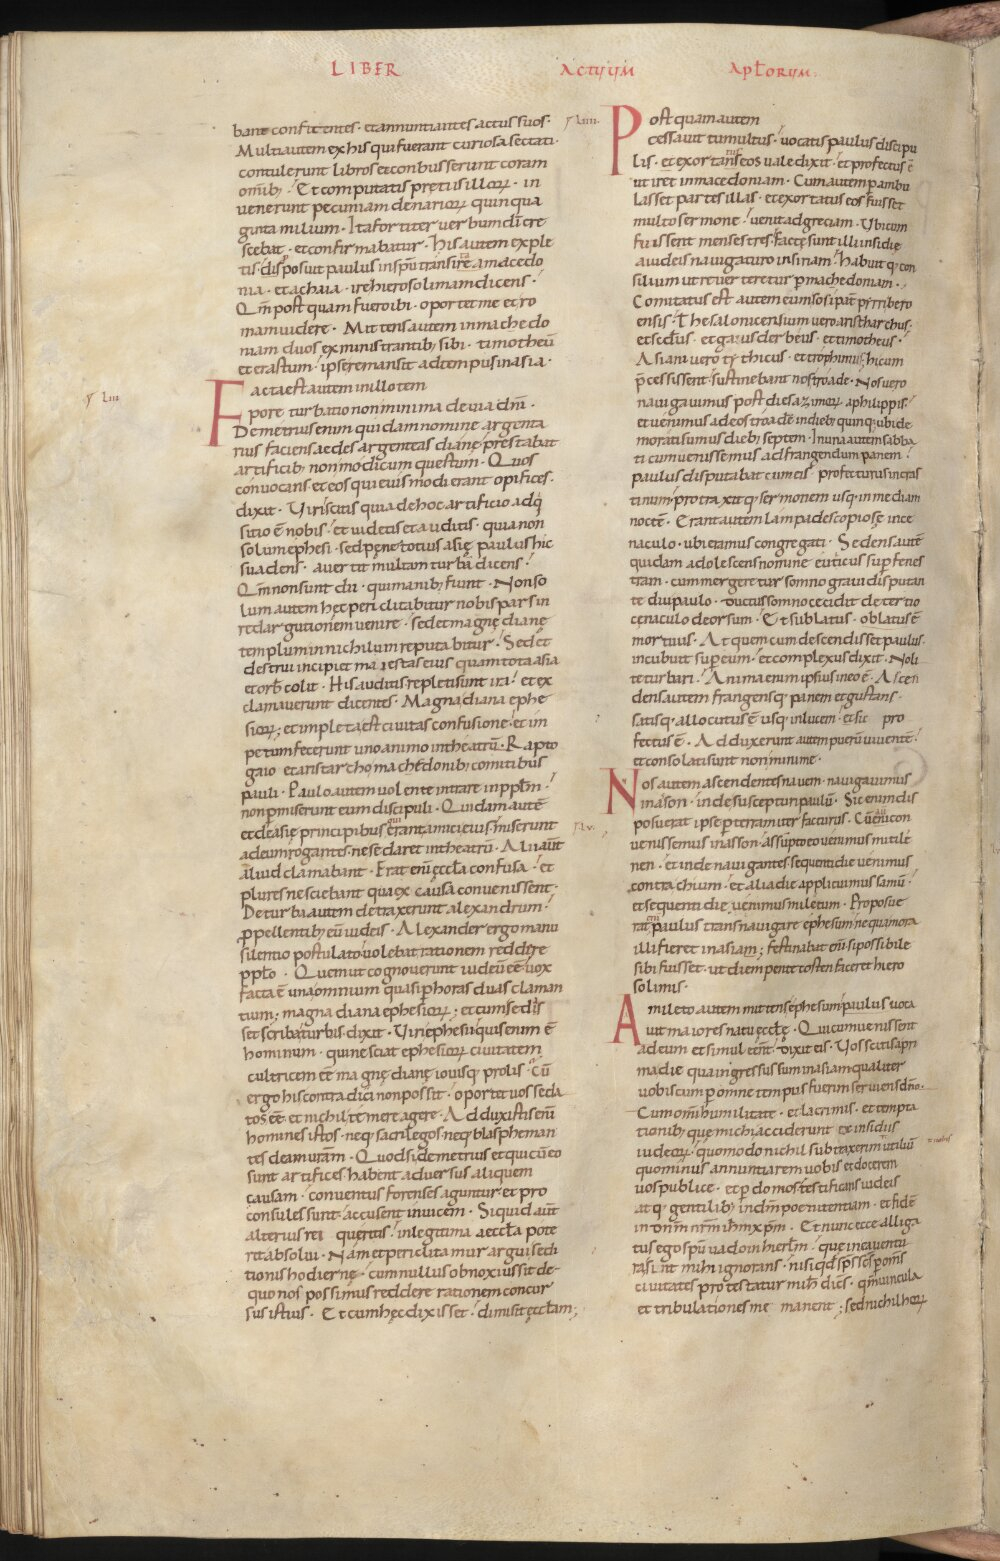 LIBER ACTUUM APŁORUM.
bant confitentes · et annuntiantes actus suos ·
Multi autem ex his qui fuerant curiosa sectati ·
contulerunt libros et conbusserunt coram
omīb; · Et computatis pretiis illoꝝ · in
venerunt pecuniam denarioꝝ quinqua
ginta milium · Ita fortiter verbum dī cre
scebat · et confirmabatur · His autem exple
tis · disposuit paulus in spū transire amacedo
nia · et achaia · ire hierosolimam dicens ·
Qm̄ post quam fuero ibi · oportet me et ro
mam videre · Mittens autem in machedo
niam duos ex ministrantib; sibi · timotheū
et erastum · ipse remansit ad tempus in asia ·
liii
Facta est autem in illo tem
pore turbatio non minima de via dn̄i ·
Demetrius enim quidam nomine argenta
rius faciens aedes argenteas dianę prestabat
artificib; non modicum questum · Quos
convocans · et eos qui eius modi erant opifices ·
dixit · Viri scitis quia de hoc artificio adq̇
sitio ē nobis · et videtis et auditis · quia non
solum ephesi · sed pęne totius asię paulus hic
suadens · avertit multam turbā dicens ·
Qm̄ non sunt dii · qui manib; fiunt · Non so
lum autem hęc periclitabitur nobis pars in
redargutionem venire · sed et magnę dianę
templum in nichilum reputabitur · Sed et
destrui incipiet maiestas eius quam tota asia
et orb̄ colit · His auditis repleti sunt ira · et ex
clamaverunt dicentes · Magna diana ephe
sioꝝ; et impleta est civitas confusione · et im
petum fecerunt uno animo in theatrū · Rapto
gaio et aristarcho machedonib; comitibus
pauli · Paulo autem volente intrare in ppłm ·
non pmiserunt eum discipuli · Quidam autē
et de asię principibus qui erant amici eius · miserunt
ad eum rogantes · ne se daret in theatrū · Alii aūt
aliud clamabant · Erat enī ęccła confusa · et
plures nesciebant qua ex causa convenissent ·
De turba autem detraxerunt alexandrum ·
ppellentib; eū iudeis · Alexander ergo manu
silentio postulato volebat rationem reddere
ppło · Quem ut cognoverunt iudeū eē vox
facta ē una omnium quasi p horas duas claman
tium; magna diana ephesioꝝ; et cum sedis
set scriba turbis dixit · Viri ephesii quis enim ē
hominum · qui nesciat ephesioꝝ civitatem
cultricem eē magnę dianę iovisq; prolis · Cū
ergo his contradici non possit · oportet vos seda
tos eē · et nichil temere agere · Adduxistis enī
homines istos · neq; sacrilegos neq; blaspheman
tes deam vram̄ · Quod si demetrius et qui cū eo
sunt artifices habent adversus aliquem
causam · conventus forenses aguntur et pro
consules sunt · accusent invicem · Si quid aūt
alterius rei queritis · in legitima aeccła pote
rit absolvi · Nam et periclitamur argui sedi
tionis hodiernę · cum nullus obnoxius sit de
quo nos possimus reddere rationem concur
sus istius · Et cum hęc dixisset · dimisit ęccłam;
liiii
Post quam autem
cessavit tumultus · vocatis paulus discipu
lis · et exortans eos valedixit · et profectus ē
ut iret in macedoniam · Cum autem pambu
lasset partes illas · et exortatus eos fuisset
multo sermone · venit ad greciam · Ubi cum
fuissent menses tres · factę sunt illi insidię
a iudeis navigaturo in siriam · habuit q; con
silium ut reverteretur p machedoniam ·
Comitatus est autem eum sosipat̄ pirri bero
ensis · Thesalonicensium vero aristharchus ·
et secdus · et gaius derbeus · et timotheus ·
Asiani vero tythicus · et trophimus; hi cum
p̄cessissent · sustinebant nos troade · Nos vero
navigavimus post dies azimoꝝ a philippis ·
et venimus ad eos troadē in dieb; quinq; ubi de
morati sumus dieb; septem · In una autem sabba
ti cum venissemus ad frangendum panem ·
paulus disputabat cum eis · profecturus in cras
tinum · protraxitq; sermonem usq; in mediam
noctē · Erant autem lampades copiosę in ce
naculo · ubi eramus congregati · Sedens autē
quidam adolescens nomine euticus sup fenes
tram · cum mergeretur somno gravi disputan
te diu paulo · ductus somno cecidit de tertio
cenaculo deorsum · Et sublatus · oblatus ē
mortuus · Ad quem cum descendisset paulus ·
incubuit sup eum · et complexus dixit · Noli
te turbari · Anima enim ipsius in eo ē · Ascen
dens autem frangensq; panem et gustans ·
satisq; allocutus ē usq; in lucem · et sic pro
fectus ē · Adduxerunt autem puerū viventē ·
et consolati sunt non minime ·
lv
Nos autem ascendentes navem · navigavimus
in ason · inde suscepturi paulū · Sic enim dis
posuerat ipse p terram iter facturus · Cū enī con
venissemus in asson · assumpto eo venimus mitile
nen · et inde navigantes · sequenti die venimus
contra chium · et alia die applicuimus samū ·
et sequenti die venimus miletum · Proposue
rat enī paulus transnavigare ephesum · ne qua mora
illi fieret in asiam; festinabat enī si possibile
sibi fuisset · ut diem pentecosten faceret hiero
solimis ·
A mileto autem mittens ephesum · paulus voca
vit maiores natu ęccłę · Qui cum venissent
ad eum et simul eēnt · dixit eis · Vos scitis a pri
ma die qua ingressus sum in asiam qualiter
vobiscum p omne tempus fuerim serviens dn̄o ·
Cum om̄i humilitate · et lacrimis · et tempta
tionib; que michi acciderunt ex insidiis
iudeoꝝ · quomodo nichil subtraxerim utiliū
quominus annuntiarem vobis et docerem
vos publice · et p domos testificans iudeis
atq; gentilib; in dm̄ poenitentiam · et fidē
in dn̄m nrm̄ ihm̄ xpm̄ · Et nunc ecce alliga
tus ego spū vado in hierłm · que in ea ventu
ra sint mihi ignorans · nisi qd̄ sps̄ scs̄ p om̄s
civitates protestatur mihi dicēs · qm̄ vincula
et tribulationes me manent; sed nichil hoꝝ